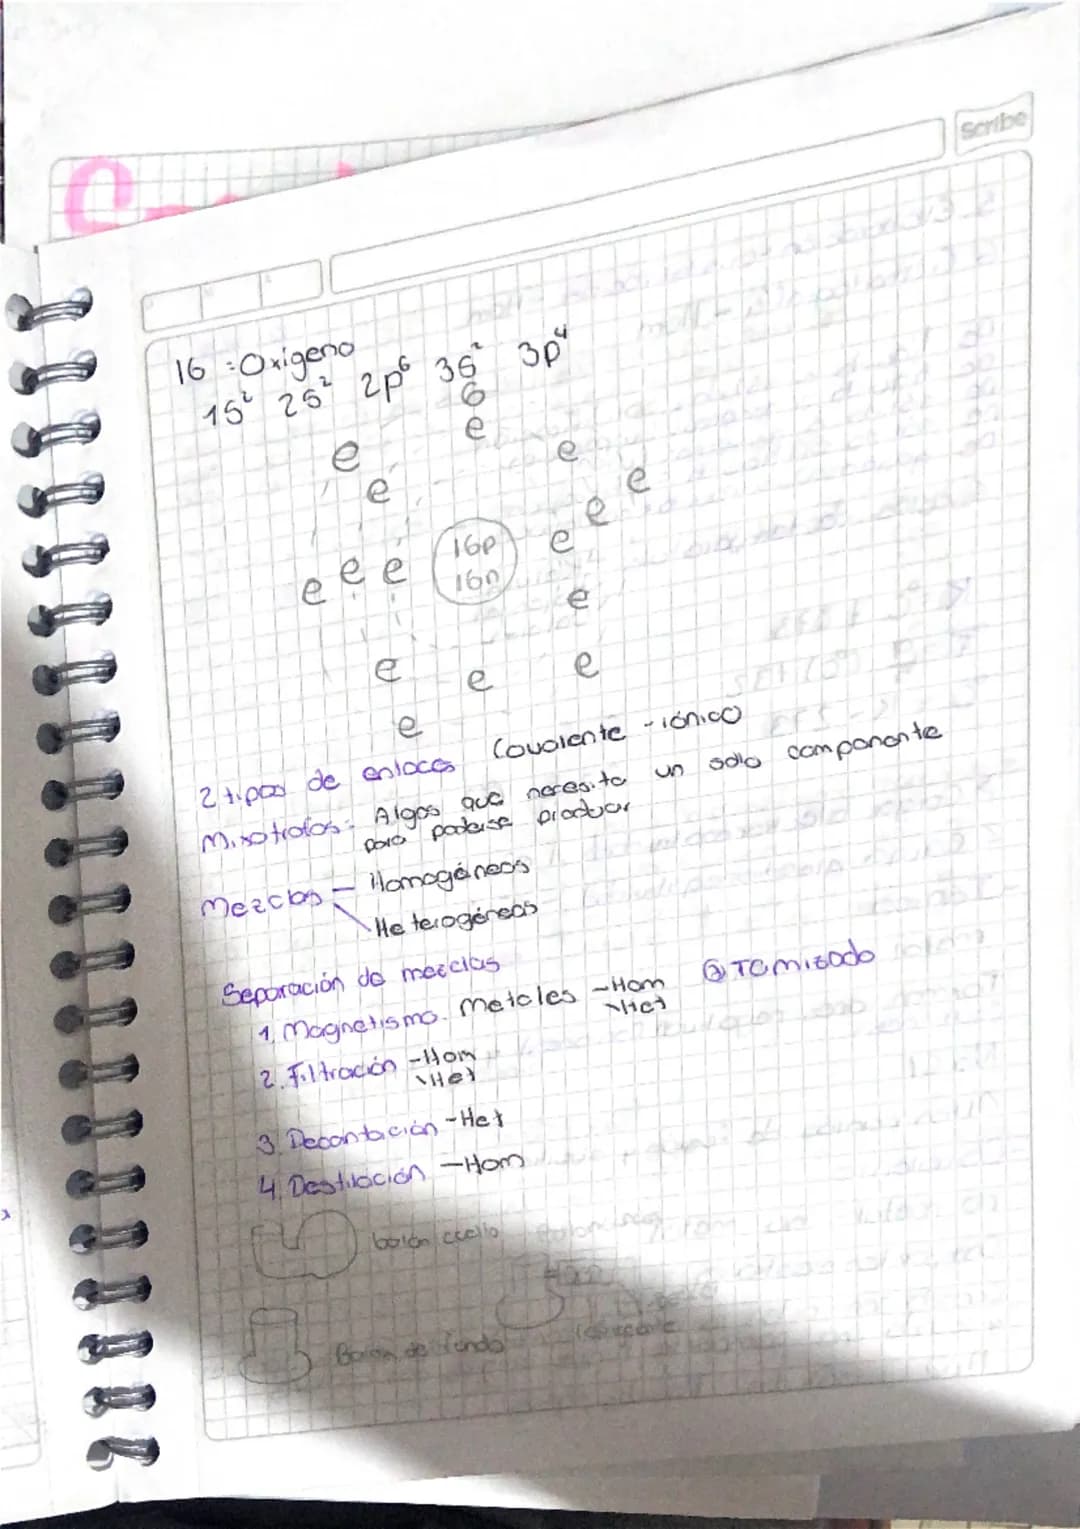 Scribe
16 : Oxigeno
1s² 2s² 2p⁶ 3s² 3p⁴
6
e e e
e e
e
e e e 16p e
16n e
e e e
e
2 tipos de enlaces Covalente - iónico
Mixotrofos: Algos que necesita un sollo componente
para poderse producir
Mezclas - Homogéneas
\ Heterogéneas
Separación de mezclas
1. Magnetismo. Metales - Hom
\ Het
@ Tamisado
2. Filtración - Hom
\ Het
3. Decantación - Het
4. Destilación - Hom
balón cuello
Balon de fondo